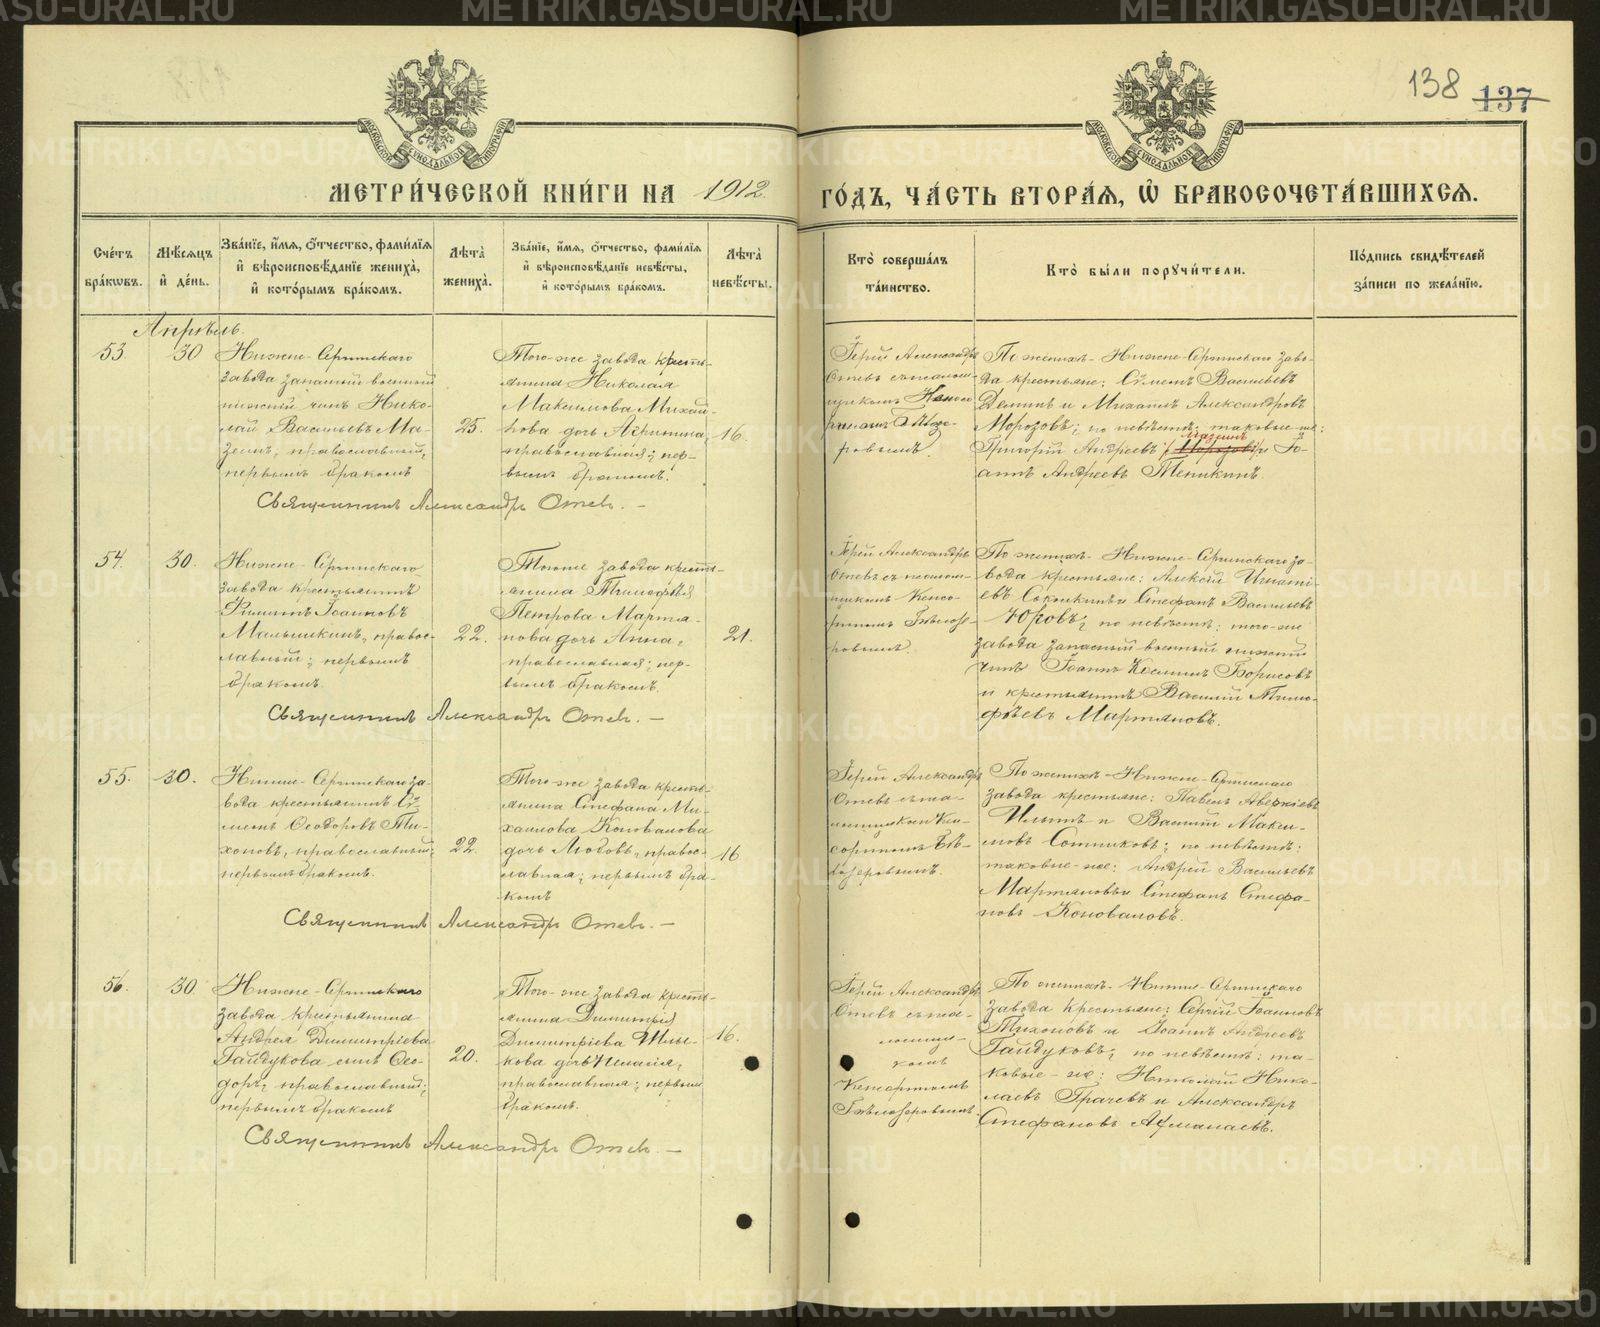 138 137
МЕТРИ́ЧЕСКОЙ КНИ́ГИ НА 1912 ГО́ДЪ, ЧА́СТЬ ВТОРА́Я, Ѡ БРАКОСОЧЕТА́ВШИХСЯ.
Сче́тъ бра́кѡвъ.
Мѣ́сяцъ и де́нь.
Зва́нїе, и́мя, ѻ́тчество, фами́лїя и вѣроисповѣ́данїе жениха̀, и кото́рымъ бра́комъ.
Лѣта̀ жениха̀.
Зва́нїе, и́мя, ѻ́тчество, фами́лїя и вѣроисповѣ́данїе невѣ́сты, и кото́рымъ бра́комъ.
Лѣта̀ невѣ́сты.
Кто̀ соверша́лъ та́инство.
Кто̀ бы́ли поручи́тели.
По́дпись свидѣ́телей за́писи по жела́нїю.
Апрѣль.
53. 30
Нижне-Сергинскаго
завода запасный военный
нижній чинъ Нико-
лай Васильевъ Ма-
зеинъ, православный,
первымъ бракомъ
25.
Того-же завода кресть-
янина Николая
Максимова Михай-
лова дочь Агрипина,
православная; пер-
вымъ бракомъ.
16.
Іерей Александръ
Отевъ съ псалом-
щикомъ Кенсо-
риномъ Бѣлозе-
ровымъ.
По женихѣ - Нижне-Сергинскаго заво-
да крестьяне: Сѵмеонъ Васильевъ
Деминъ и Михаилъ Александровъ
Морозовъ; по невѣстѣ: таковые-же:
Мазеинъ
Григорій Андреевъ /Морозовъ/ и Іо-
аннъ Андреевъ Теникинъ.
Священникъ Александръ Отевъ. -
54. 30.
Нижне-Сергинскаго
завода крестьянинъ
Филиппъ Іоанновъ
Малышкинъ, правос-
лавный; первымъ
бракомъ
22.
Тогоже завода кресть-
янина Тимофѣя
Петрова Мартья-
нова дочь Анна,
православная; пер-
вымъ бракомъ.
21.
Іерей Александръ
Отевъ съ псалом-
щикомъ Кенсо-
риномъ Бѣлозе-
ровымъ.
По женихѣ - Нижне-Сергинскаго за-
вода крестьяне: Алексій Игнаті-
евъ Сокоикинъ и Стефанъ Васильевъ
Юровъ; по невѣстѣ: того-же
завода запасный военный нижній
чинъ Іоаннъ Косминъ Борисовъ
и крестьянинъ Василій Тимо-
фѣевъ Мартьяновъ.
Священникъ Александръ Отевъ. -
55. 30.
Нижне-Сергинскаго за-
вода крестьянинъ Сѵ-
меонъ Ѳеодоровъ Ти-
хоновъ, православный;
первымъ бракомъ.
22.
Того-же завода кресть-
янина Стефана Ми-
хаилова Коновалова
дочь Любовь, правос-
лавная; первымъ бра-
комъ
16
Іерей Александръ
Отевъ съ пса-
ломщикомъ Кен-
сориномъ Бѣ-
лозеровымъ.
По женихѣ - Нижне-Сергинскаго
завода крестьяне: Павелъ Аверкіевъ
Ильинъ и Василій Макси-
мовъ Сотниковъ; по невѣстѣ:
таковые-же: Андрей Васильевъ
Мартьяновъ и Стефанъ Стефа-
новъ Коноваловъ.
Священникъ Александръ Отевъ. -
56. 30.
Нижне-Сергинскаго
завода крестьянина
Андрея Димитріева
Гайдукова сынъ Ѳео-
доръ, православный;
первымъ бракомъ
20.
Того-же завода кресть-
янина Димитрія
Димитріева Шиье-
кова дочь Пелагія,
православная; первымъ
бракомъ.
16.
Іерей Александръ
Отевъ съ пса-
ломщи-
комъ
Кенсориномъ
Бѣлозеровымъ.
По женихѣ - Нижне-Сергинскаго
завода крестьяне: Сергій Іоанновъ
Тихоновъ и Іоаннъ Андреевъ
Гайдуковъ; по невѣстѣ: та-
ковые-же: Николай Нико-
лаевъ Грачевъ и Александръ
Стефановъ Асманаевъ.
Священникъ Александръ Отевъ. -